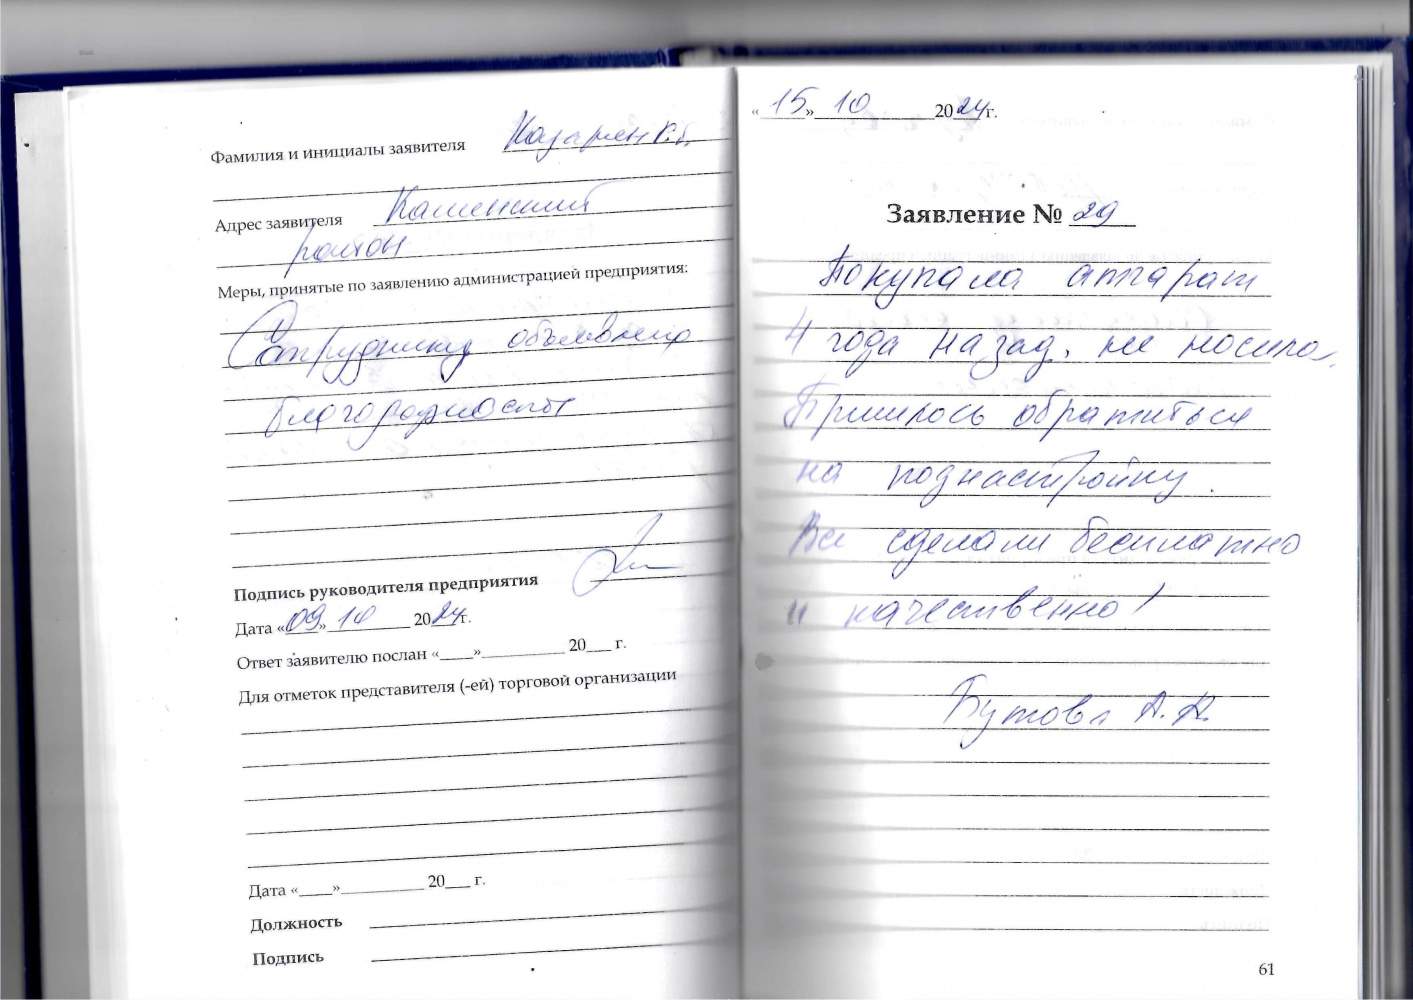 Фамилия и инициалы заявителя
Адрес заявителя Каменский
район
Меры, принятые по заявлению администрацией предприятия:
Сотруднику объявлено
благодарность
Подпись руководителя предприятия
Дата «09» 10 2024г.
Ответ заявителю послан «____»__________ 20___ г.
Для отметок представителя (-ей) торговой организации
Дата «____»__________ 20___ г.
Должность
Подпись
«15» 10 2024г.
Заявление № 29
Покупала аппарат
4 года назад, не носила,
Пришлось обратиться
на поднастройку.
Все сделали бесплатно
и качественно!
Бутова А.К.
61